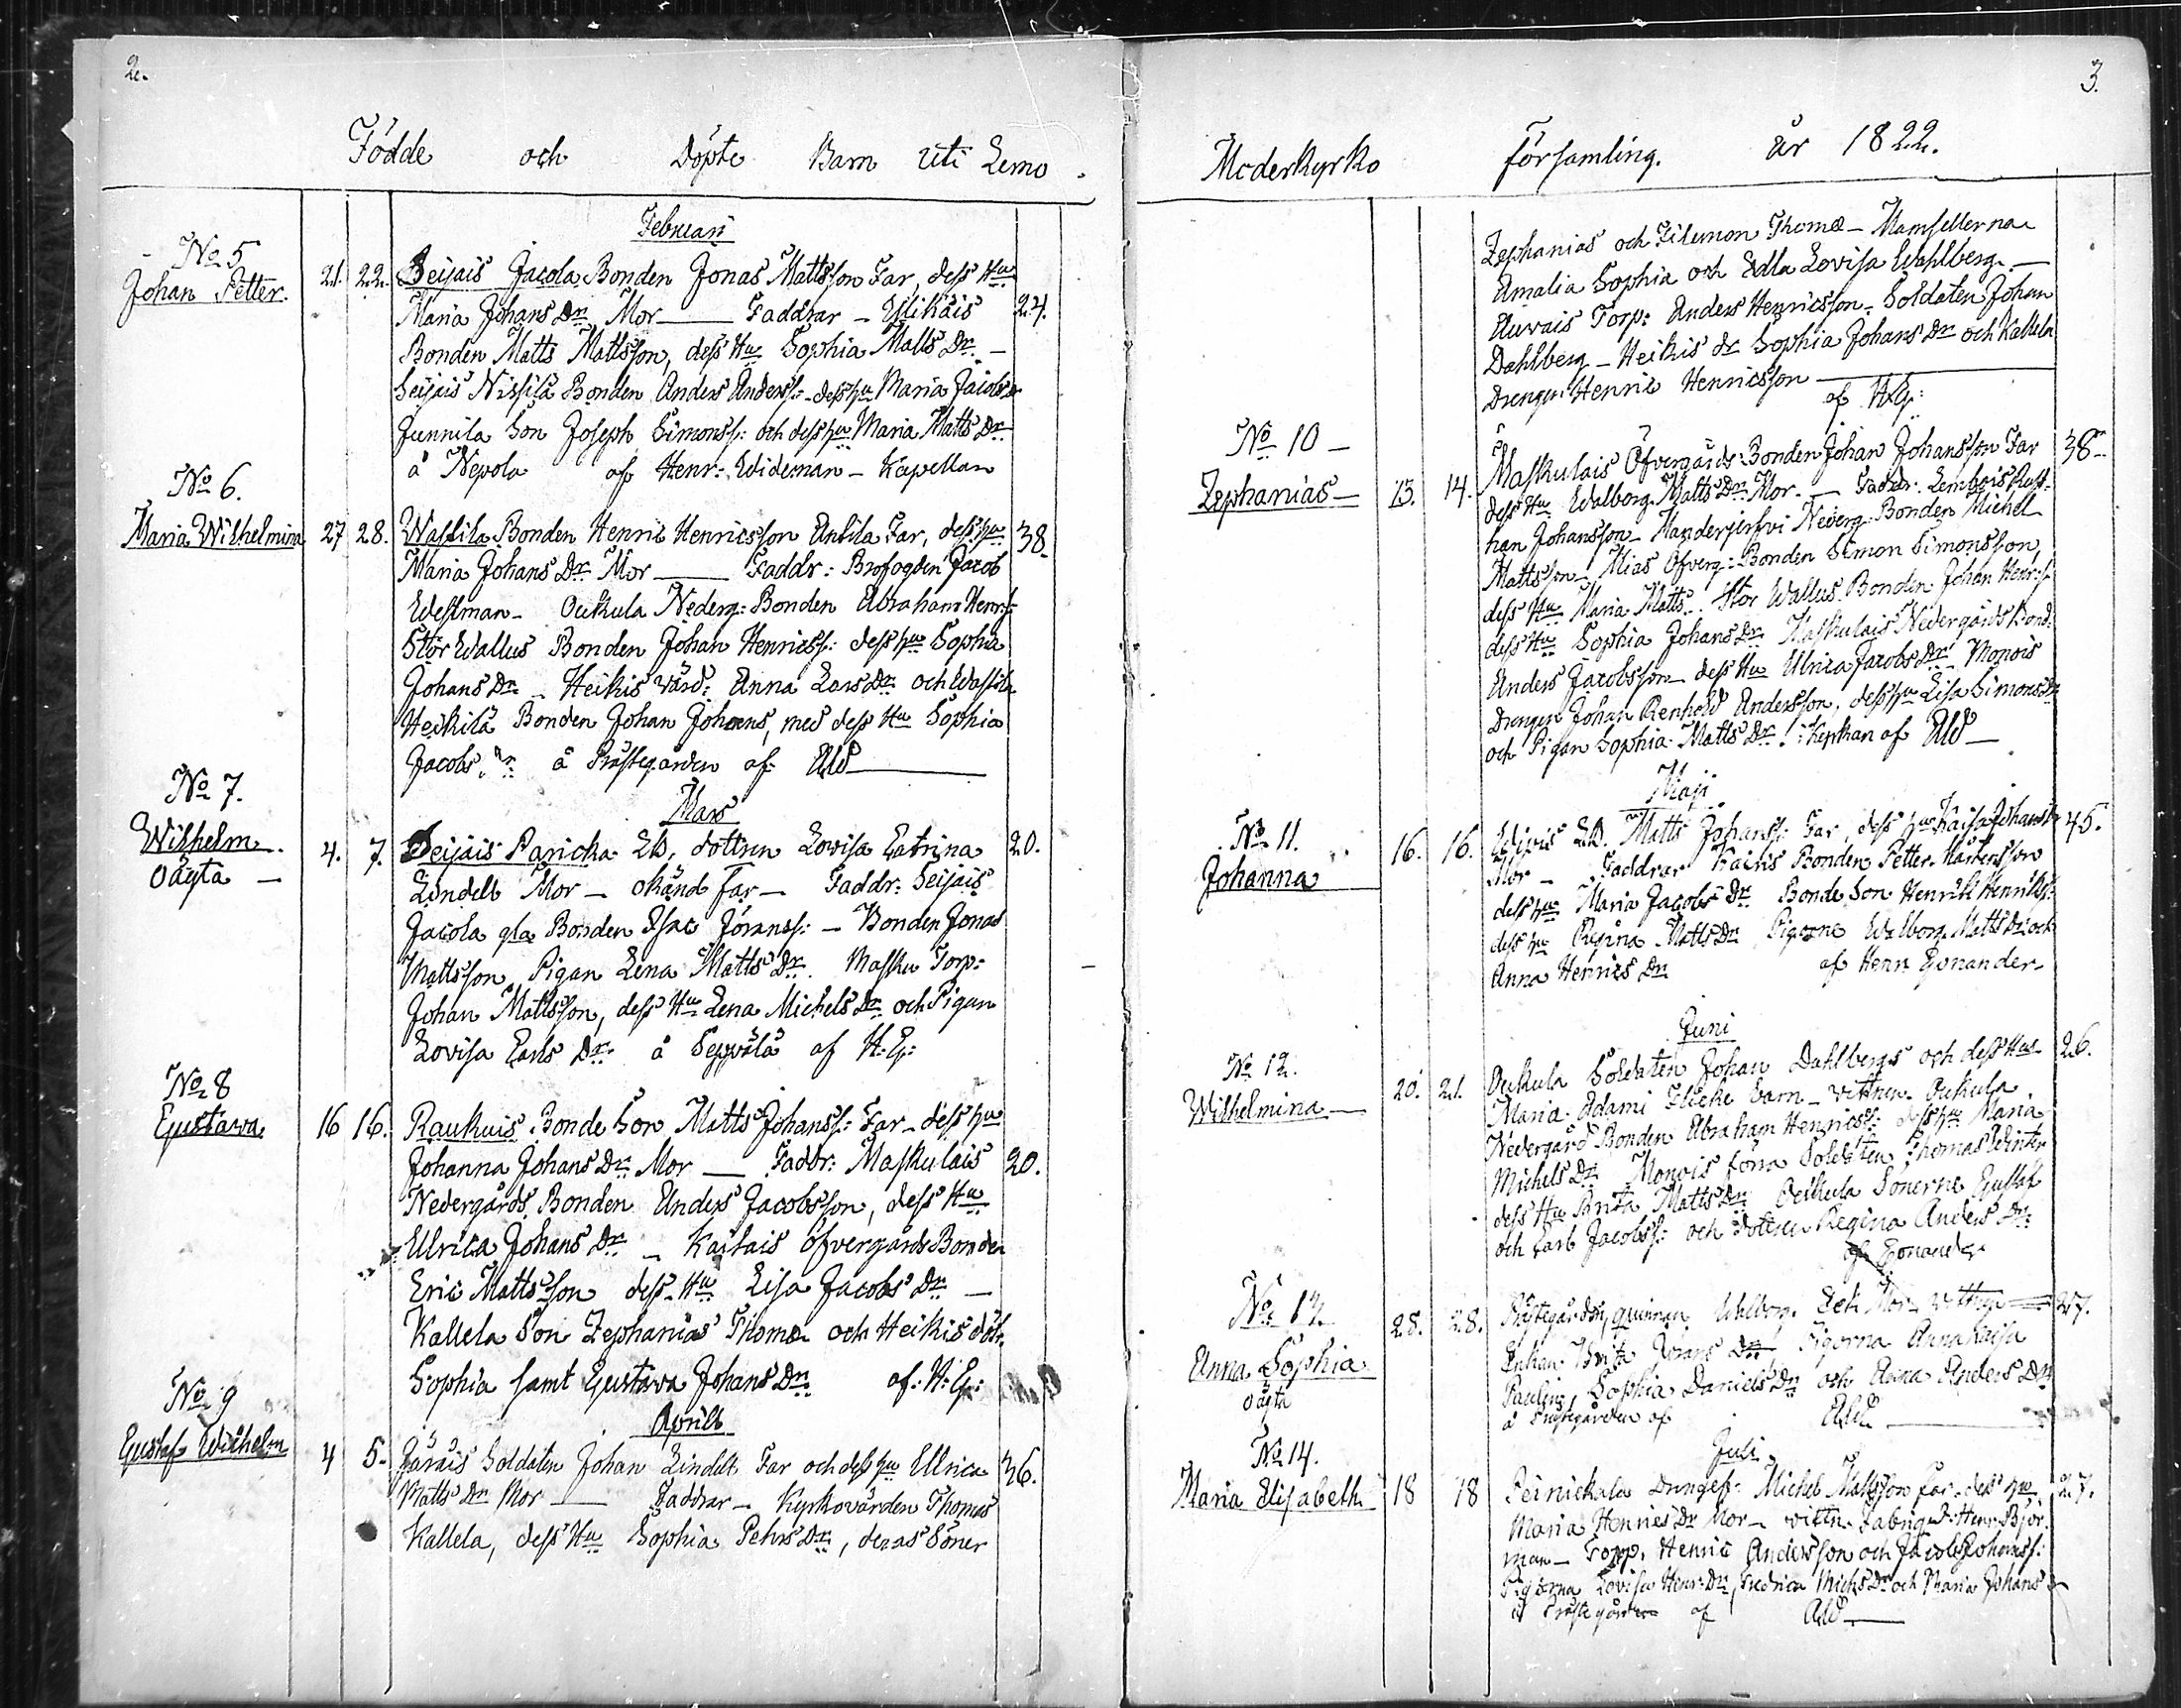 2.
Födde och Döpte Barn uti Lemo
Februari
No 5
Johan Petter.
21. 22. Seijais Jacola Bonden Jonas Mattsson Far, dess Hu
Maria Johans Dr Mor — Faddrar — Ellikais 24.
Bonden Matts Mattsson, dess Hu Sophia Matts Dr —
Seijais Nissilä Bonden Anders Anderss: dess hu Maria Jacobs dr
Junnila Son Joseph Simonss: och dess hu Maria Matts Dr
å Nepola af Henr: Wideman — Kapellan
No 6.
Maria Wilhelmina 27 28. Wassila Bonden Henric Henricsson Antila Far, dess hu 38.
Maria Johans Dr Mor — Faddr: Brofogden Jacob
Westman — Oukula Nederg: Bonden Abraham Henrs:
Stor Wallus Bonden Johan Henricss: dess hu Sophia
Johans Dr — Heikis värd: Anna Lars Dr och Wassila
Heikilä Bonden Johan Johans, med dess Hu Sophia
Jacobs Dr å Prästegården af AW —
Mars
No 7.
Wilhelm
oägta —
4. 7. Seijais Paricka Ed. dottren Lovisa Catrina 20.
Lindell Mor — okänd Far — Faddr: Seijais
Jacola gla Bonden Isac Jöranss: — Bonden Jonas
Mattsson Pigan Lena Matts Dr. Masku Torp:
Johan Mattsson, dess Hu Lena Michels Dr och Pigan
Lovisa Carls Dr å Seppälä af H: G:
No 8
Gustava
16 16. Raukuis Bonde Son Matts Johanss: Far — dess hu
Johanna Johans Dr Mor — Faddr: Maskulais 20.
Nedergårds Bonden Anders Jacobsson, dess Hu
Ulrica Johans Dr — Kaitais öfvergårds Bonden
Eric Mattsson dess Hu Lisa Jacobs Dr —
Kallela Son Zephanias Thomæ och Heikis döt:
Sophia samt Gustava Johans Dr af: H: G:
Aprill
No 9
Gustaf Wilhelm
4 5. Järäis Soldaten Johan Lindelt Far och dess hu Ulrica 36.
Matts Dr Mor — Faddrar — Kyrkovärden Thomas
Kallela, dess Hu Sophia Pehrs Dr, deras Söner
3.
Moderkyrko församling. år 1822.
Zephanias och Filemon Thomæ — Mamsellerna
Amalia Sophia och Edla Lovisa Wahlberg —
Auvais Torp: Anders Henricsson — Soldaten Johan
Dahlberg — Heikis dr Sophia Johans Dr och Kallela
Drengen Henric Henricsson —
af H G:
No 10 —
Zephanias —
13. 14. Maskulais Öfvergårds Bonden Johan Johansson Far 38
dess Hu Walborg Matts Dr Mor. — Faddr: Lembois
han Johansson — Nederg: Bonden Michel
Mattsson — Mias Öfverg: Bonden Simon Simonsson,
dess Hu Maria Matts. Stor Wallus Bonden Johan Henrs:
dess Hu Sophia Johans Dr Maskulais Nedergårds Bond:
Anders Jacobsson dess Hu Ulrica Jacobs Dr — Monois
Drengen Johan Renhold Andersson, dess hu Lisa Simons Dr
och Pigan Sophia Matts Dr af AW —
Maji
No 11.
Johanna
16. 16. Matts Johanss: Far, dess hu Kaisa Johans Dr 45.
Mor — Faddrar Kairis Bonden Petter Mårtensson
dess hu Maria Jacobs Dr Bonde Son Henrik Henrikss:
dess hu Regina Matts Dr Pigorne Walborg Matts Dr och
Anna Henrics Dr af Henr Gonander
Juni
No 12.
Wilhelmina —
20. 21. Oukula Soldaten Johan Dahlbergs och dess Hus 26.
Maria Adami Flicke barn — vittnen Oukula
Nedergård Bonden Abraham Henricss: dess hu Maria
Michels Dr Monois förra Soldaten Thomas Winter
dess Hu Brita Matts Dr Oukula Sönerne Gustaf
och Carl Jacobss: och dottren Regina Anders Dr
af Gonander
No 13
Anna Sophia
oägta
28. 28. Prästegårds quinnan Walborg Mor — vittnen 27.
Enkan Brita Dr Pigorna Anna Kaisa
Paulin, Sophia Daniels Dr och Anna Anders Dr
å Prästegården af AW —
Juli
No 14.
Maria Elisabeth
18 18 Peinickala Drengen: Michel Mattsson far. dess hu 27.
Maria Henrics Dr Mor — vittn. Henr Björ-
man — Torp. Henric Andersson och Jacob Johanss:
Pigorna Lovisa Henr: Dr, Fredrica Mich:s Dr och Maria Johans Dr
å Prästegården af AW —